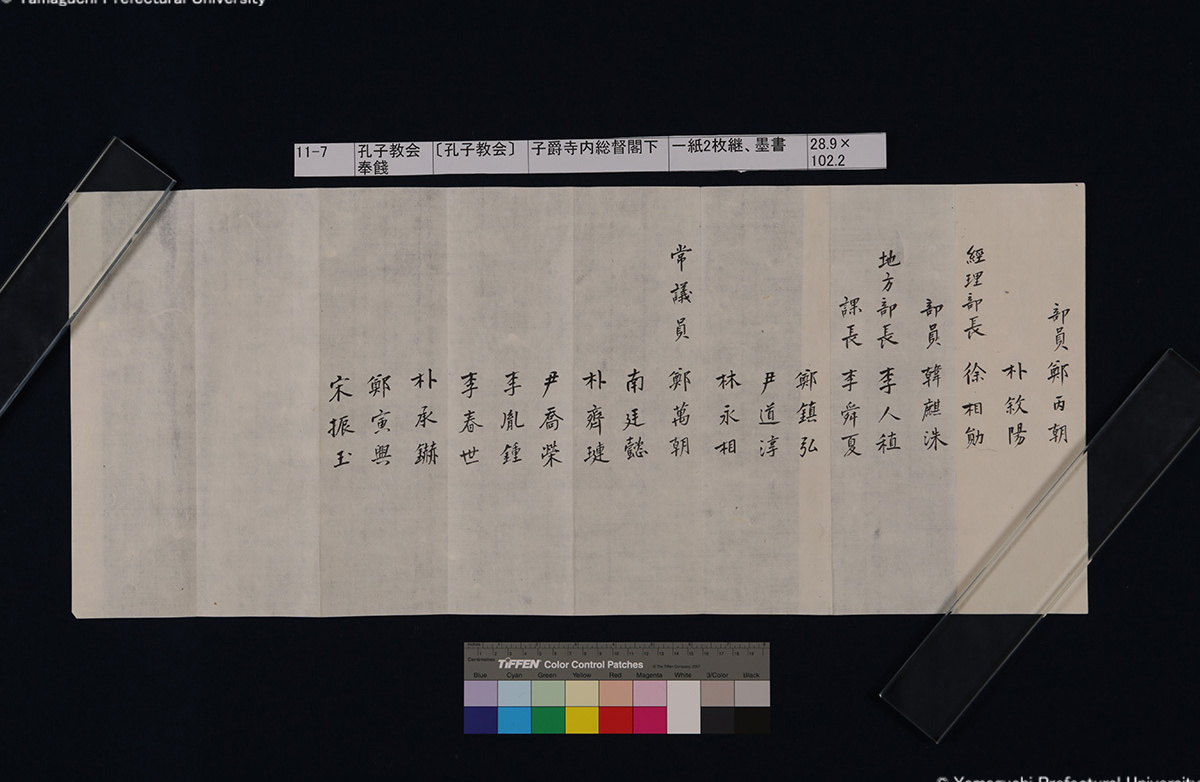 © Yamaguchi Prefectural University
11-7 孔子教会奉餞 〔孔子教会〕 子爵寺内総督閣下 一紙2枚継、墨書 28.9×102.2
部員 鄭丙朝
朴敍陽
經理部長 徐相勛
部員 韓麒洙
地方部長 李人稙
課長 李舜夏
鄭鎮弘
尹道淳
林永相
常議員 鄭萬朝
南廷懿
朴齊璉
尹喬榮
李胤鍾
李春世
朴承爀
鄭寅興
宋振玉
TIFFEN Color Control Patches
Blue Cyan Green Yellow Red Magenta White 3/Color Black
© Yamaguchi Prefectural University